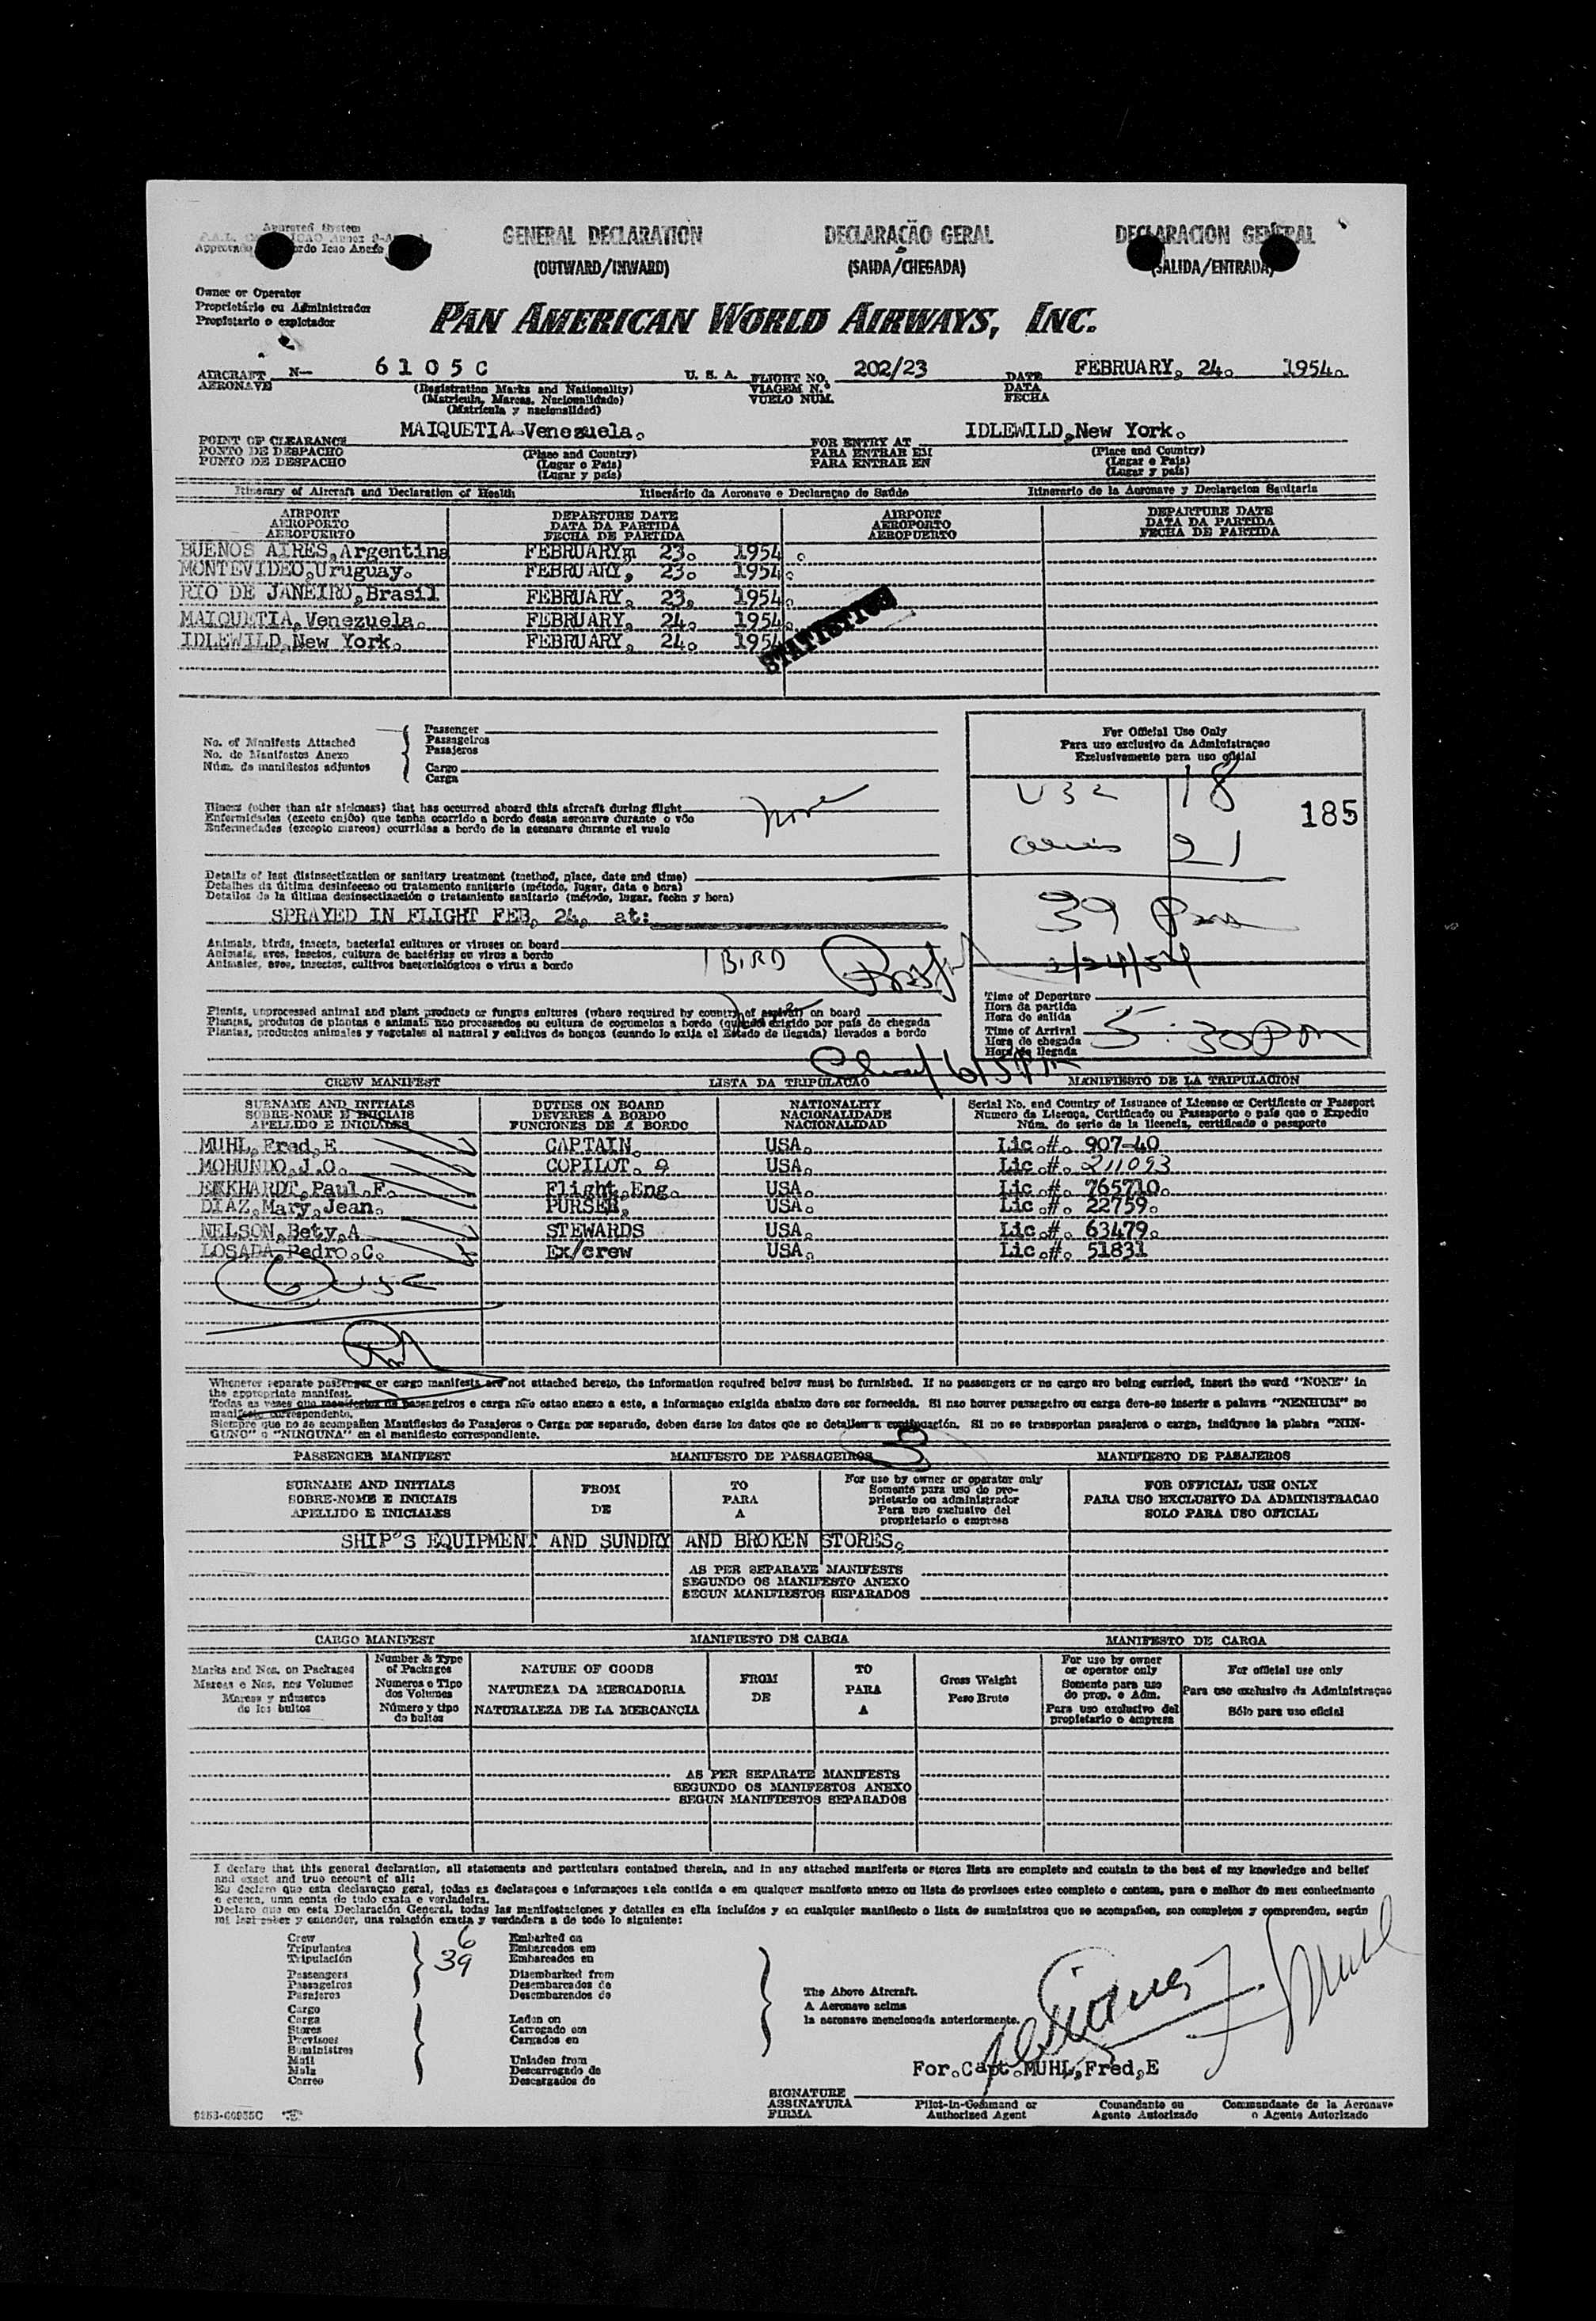 Approved System
Approvado
ordo Icao Anexo
GENERAL DECLARATION
(OUTWARD/INWARD)
DECLARAÇÃO GERAL
(SAIDA/CHEGADA)
DECLARACION GENERAL
(SALIDA/ENTRADA)
Owner or Operator
Proprietário ou Administrador
Propietario o explotador
PAN AMERICAN WORLD AIRWAYS, INC.
AIRCRAFT N— 6105C U. S. A. FLIGHT NO. 202/23 DATE FEBRUARY, 24. 1954.
AERONAVE (Registration Marks and Nationality) VIAGEM N.º DATA
(Matricula, Marcas, Nacionalidade) VUELO NUM. FECHA
(Matricula y nacionalided)
POINT OF CLEARANCE MAIQUETIA-Venezuela. FOR ENTRY AT IDLEWILD,New York.
PONTO DE DESPACHO (Place and Country) PARA ENTRAR EM (Place and Country)
PUNTO DE DESPACHO (Lugar o Pais) PARA ENTRAR EN (Lugar e Pais)
(Lugar y pais) (Lugar y pais)
Itinerary of Aircraft and Declaration of Health Itinerário da Aeronave e Declaraçao de Saúde Itinerario de la Aeronave y Declaracion Sanitaria
AIRPORT DEPARTURE DATE AIRPORT DEPARTURE DATE
AEROPORTO DATA DA PARTIDA AEROPORTO DATA DA PARTIDA
AEROPUERTO FECHA DE PARTIDA AEROPUERTO FECHA DE PARTIDA
BUENOS AIRES,Argentina FEBRUARYm 23. 1954.
MONTEVIDEO,Uruguay. FEBRUARY, 23. 1954.
RIO DE JANEIRO,Brasil FEBRUARY, 23, 1954.
MAIQUETIA,Venezuela. FEBRUARY, 24. 1954.
IDLEWILD,New York. FEBRUARY, 24. 1954
STATISTICS
No. of Manifests Attached
No. de Manifestos Anexo
Núm. de manifiestos adjuntos
Passenger
Passageiros
Pasajeros
Cargo
Carga
For Official Use Only
Para uso exclusivo da Administraçao
Exclusivamente para uso oficial
USC 18
185
Aliens 21
39 Pax
2/24/54
Illness (other than air sickness) that has occurred aboard this aircraft during flight none
Enfermidades (exceto enjôo) que tenha ocorrido a bordo desta aeronave durante o vôo
Enfermedades (excepto mareos) ocurridas a bordo de la aeronave durante el vuelo
Details of last disinsectization or sanitary treatment (method, place, date and time)
Detalhes da última desinfeccao ou tratamento sanitario (método, lugar, data e hora)
Detalles de la última desinsectización o tratamiento sanitario (método, lugar, fecha y hora)
SPRAYED IN FLIGHT FEB, 24, at:
Animals, birds, insects, bacterial cultures or viruses on board 1 BIRD
Animais, aves, insetos, cultura de bactérias ou virus a bordo
Animales, aves, insectos, cultivos bacteriológicos o virus a bordo
Plants, unprocessed animal and plant products or fungus cultures (where required by country of arrival) on board
Plantas, produtos de plantas e animais nao processados ou cultura de cogumelos a bordo (quando exigido por pais de chegada
Plantas, productos animales y vegetales al natural y cultivos de hongos (cuando lo exija el Estado de llegada) llevados a bordo
Time of Departure
Hora da partida
Hora de salida
Time of Arrival 5:30 PM
Hora de chegada
Hora de llegada
CREW MANIFEST LISTA DA TRIPULACAO MANIFIESTO DE LA TRIPULACION
SURNAME AND INITIALS DUTIES ON BOARD NATIONALITY Serial No. and Country of Issuance of License or Certificate or Passport
SOBRE-NOME E INICIAIS DEVERES A BORDO NACIONALIDADE Numero da Licença, Certificado ou Passaporte o pais que o Expediu
APELLIDO E INICIALES FUNCIONES DE A BORDO NACIONALIDAD Núm. de serie de la licencia, certificado o pasaporte
MUHL,Fred,E CAPTAIN. USA. Lic.#. 907-40
MOHUNDO,J.O. COPILOT. USA. Lic.#. 211093
EKKHARDT,Paul.F. Flight,Eng. USA. Lic.#. 765710.
DIAZ,Mary,Jean. PURSER, USA. Lic.#. 22759.
NELSON,Bety,A STEWARDS USA. Lic.#. 63479.
LOSADA,Pedro,C. Ex/crew USA. Lic.#. 51831
6 USC
Whenever separate passenger or cargo manifests are not attached hereto, the information required below must be furnished. If no passengers or no cargo are being carried, insert the word "NONE" in
the appropriate manifest.
Todas as vezes que manifestos de passageiros e carga não estao anexo a este, a informaçao exigida abaixo deve ser fornecida. Si nao houver passageiro ou carga deve-se inserir a palavra "NENHUM" no
manifesto correspondente.
Siempre que no se acompañen Manifiestos de Pasajeros o Carga por separado, deben darse los datos que se detallan a continuación. Si no se transportan pasajeros o carga, inclúyase la plabra "NIN-
GUNO" o "NINGUNA" en el manifiesto correspondiente.
PASSENGER MANIFEST MANIFESTO DE PASSAGEIROS MANIFIESTO DE PASAJEROS
SURNAME AND INITIALS
SOBRE-NOME E INICIAIS
APELLIDO E INICIALES
FROM
DE
TO
PARA
A
For use by owner or operator only
Somente para uso do pro-
prietario ou administrador
Para uso exclusivo del
propietario o empresa
FOR OFFICIAL USE ONLY
PARA USO EXCLUSIVO DA ADMINISTRACAO
SOLO PARA USO OFICIAL
SHIP'S EQUIPMENT AND SUNDRY AND BROKEN STORES.
AS PER SEPARATE MANIFESTS
SEGUNDO OS MANIFESTO ANEXO
SEGUN MANIFIESTOS SEPARADOS
CARGO MANIFEST MANIFIESTO DE CARGA MANIFESTO DE CARGA
Marks and Nos. on Packages
Marcas e Nos. nos Volumes
Marcas y números
de los bultos
Number & Type
of Packages
Numeros e Tipo
dos Volumes
Número y tipo
de bultos
NATURE OF GOODS
NATUREZA DA MERCADORIA
NATURALEZA DE LA MERCANCIA
FROM
DE
TO
PARA
A
Gross Weight
Peso Bruto
For use by owner
or operator only
Somente para uso
do prop. e Adm.
Para uso exclusivo del
propietario o empresa
For official use only
Para uso exclusivo da Administraçao
Sólo para uso oficial
AS PER SEPARATE MANIFESTS
SEGUNDO OS MANIFESTOS ANEXO
SEGUN MANIFIESTOS SEPARADOS
I declare that this general declaration, all statements and particulars contained therein, and in any attached manifests or stores lists are complete and contain to the best of my knowledge and belief
and exact and true account of all:
Eu declaro que esta declaraçao geral, todas as declaraçoes e informaçoes nela contida e em qualquer manifesto anexo ou lista de provisoes estao completo e contem, para o melhor do meu conhecimento
e crenca, uma conta de tudo exata e verdadeira.
Declaro que en esta Declaración General, todas las manifestaciones y detalles en ella incluídos y en cualquier manifiesto o lista de suministros que se acompañen, son completos y comprenden, según
mi leal saber y entender, una relación exacta y verdadera a de todo lo siguiente:
Crew 6 Embarked on
Tripulantes Embarcados em
Tripulación 39 Embarcados en
Passengers Disembarked from
Passageiros Desembarcados de
Pasajeros Desembarcados de
Cargo
Carga Laden on
Stores Carregado em
Provisoes Cargados en
Suministros
Mail Unladen from
Mala Descarregado de
Correo Descargados de
The Above Aircraft.
A Aeronave acima
la aeronave mencionada anteriormente.
F Muhl
For.Capt.MUHL,Fred,E
SIGNATURE
ASSINATURA
FIRMA
Pilot-in-Command or
Authorized Agent
Comandante ou
Agente Autorizado
Commandante de la Aeronave
o Agente Autorizado